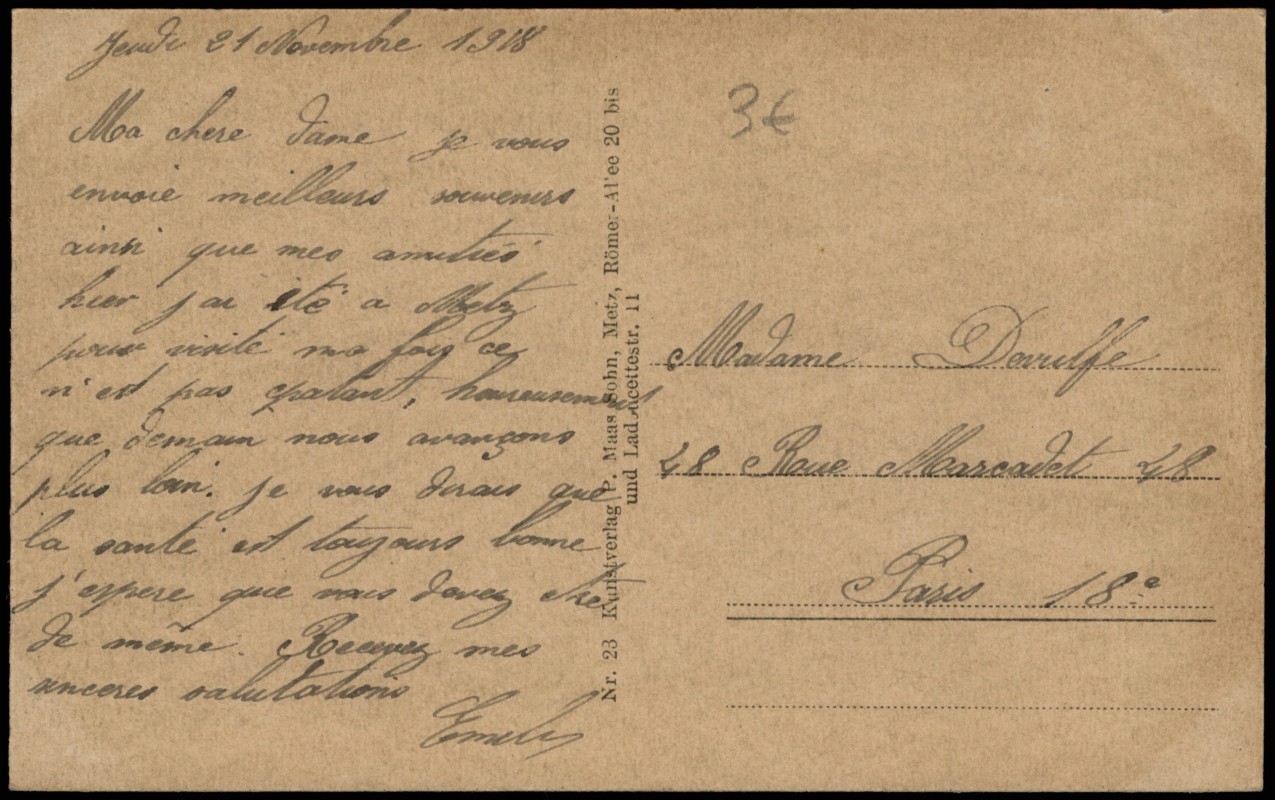 Jeudi 21 Novembre 1918
Ma chere dame je vous
envoie meilleurs souvenirs
ainsi que mes amitiés
hier j'ai été a Metz
pour visité ma fois ce
n'est pas epatant, heureusement
que demain nous avançons
plus loin. je vous dirais que
la santé est toujours bonne
j'espere que vous devez etre
de même. Recevez mes
sinceres salutations
Nr. 23 Kunstverlag P. Maas Sohn, Metz, Römer-Al'ee 20 bis
und Ladoucettestr. 11
3€
Madame
48 Rue Marcadet 48
Paris 18e